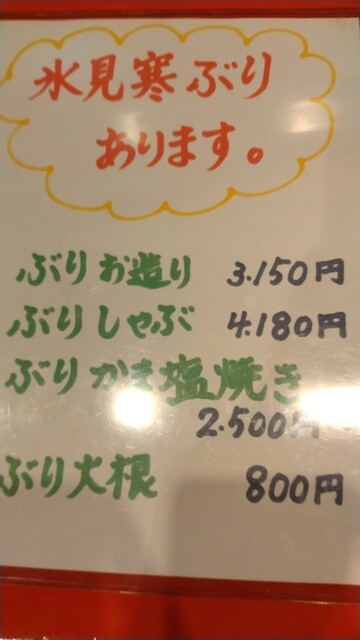 氷見寒ぶり
あります。
ぶりお造り 3.150円
ぶりしゃぶ 4.180円
ぶりかま塩焼き
2.500円
ぶり大根 800円